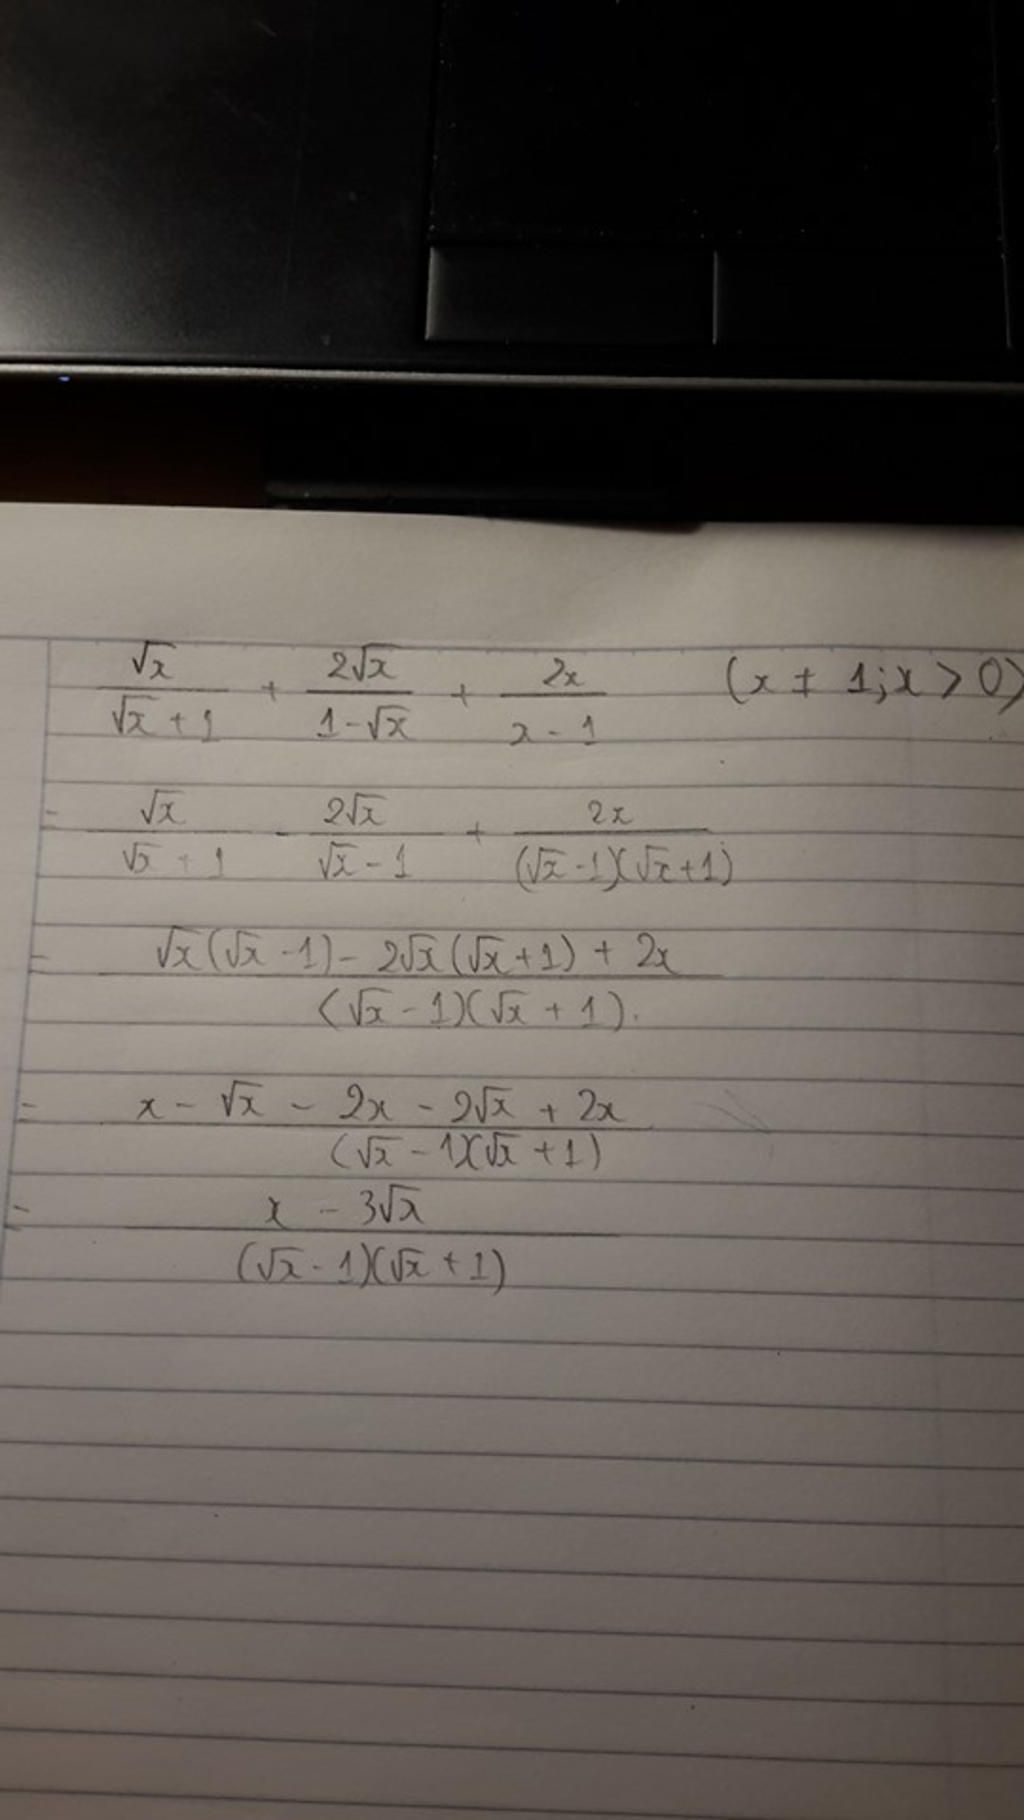 √x/(√x + 1) + 2√x/(1 - √x) + 2x/(x - 1) (x ≠ 1; x > 0)
= √x/(√x + 1) - 2√x/(√x - 1) + 2x/((√x - 1)(√x + 1))
= (√x(√x - 1) - 2√x(√x + 1) + 2x)/((√x - 1)(√x + 1)).
= (x - √x - 2x - 2√x + 2x)/((√x - 1)(√x + 1))
= (x - 3√x)/((√x - 1)(√x + 1))